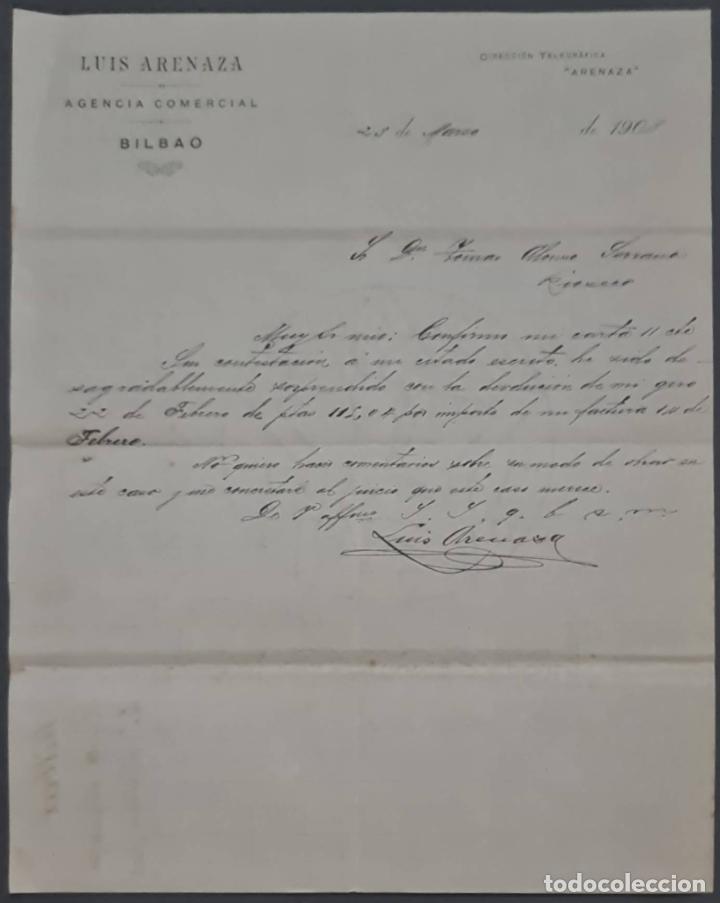 LUIS ARENAZA
AGENCIA COMERCIAL
BILBAO
DIRECCIÓN TELEGRÁFICA
"ARENAZA"
23 de Marzo de 190
S. Dn. Tomas Alonso Serrano
Rioseco
Muy Sr mio: Confirmo mi carta 11 cte
Sin contestación á mi citado escrito, he sido de-
sagradablemente sorprendido con la devolución de mi giro
22 de Febrero de ptas 115,04 por importe de mi factura 14 de
Febrero.
No quiero hacer comentarios sobre su modo de obrar en
este caso y me concretaré al juicio que este caso merece.
De V affmo S. S. q b s m
Luis Arenaza
todocoleccion
todocoleccion.net